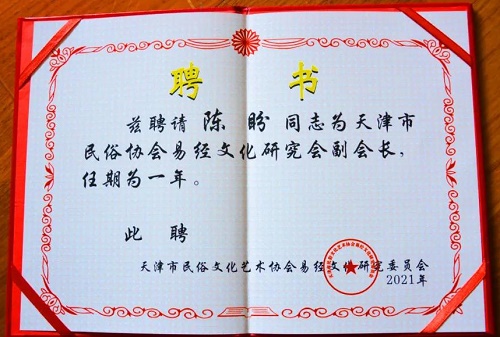 聘 书
兹聘请 陈 盼 同志为天津市
民俗协会易经文化研究会副会长，
任期为一年。
此 聘
天津市民俗文化艺术协会易经文化研究委员会
2021年